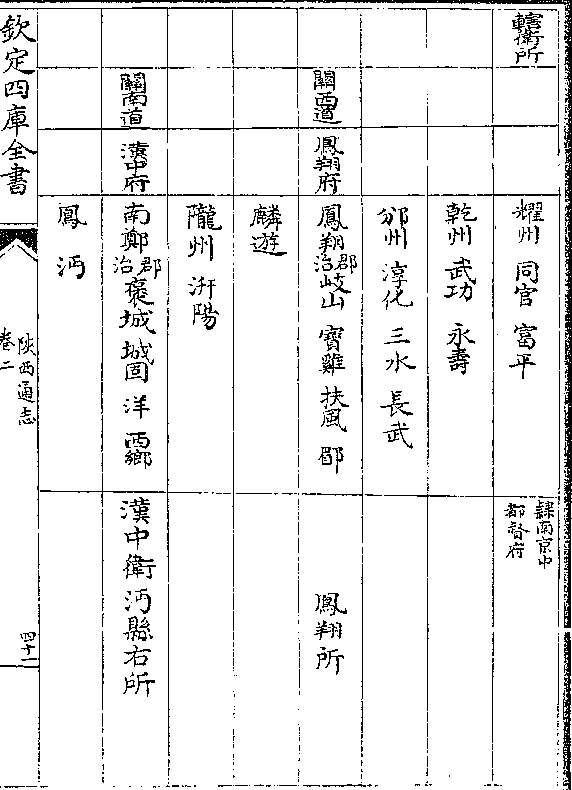 轄衛所
耀州 同官 富平
隸南京中都督府
乾州 武功 永壽
邠州 淳化 三水 長武
關西道
鳳翔府
鳳翔郡治 岐山 寶雞 扶風 郿
鳳翔所
麟遊
隴州 汧陽
關南道
漢中府
南鄭郡治 褒城 城固 洋 西鄉
漢中衛 沔縣右所
鳳 沔
欽定四庫全書
陜西通志
卷二
四十一